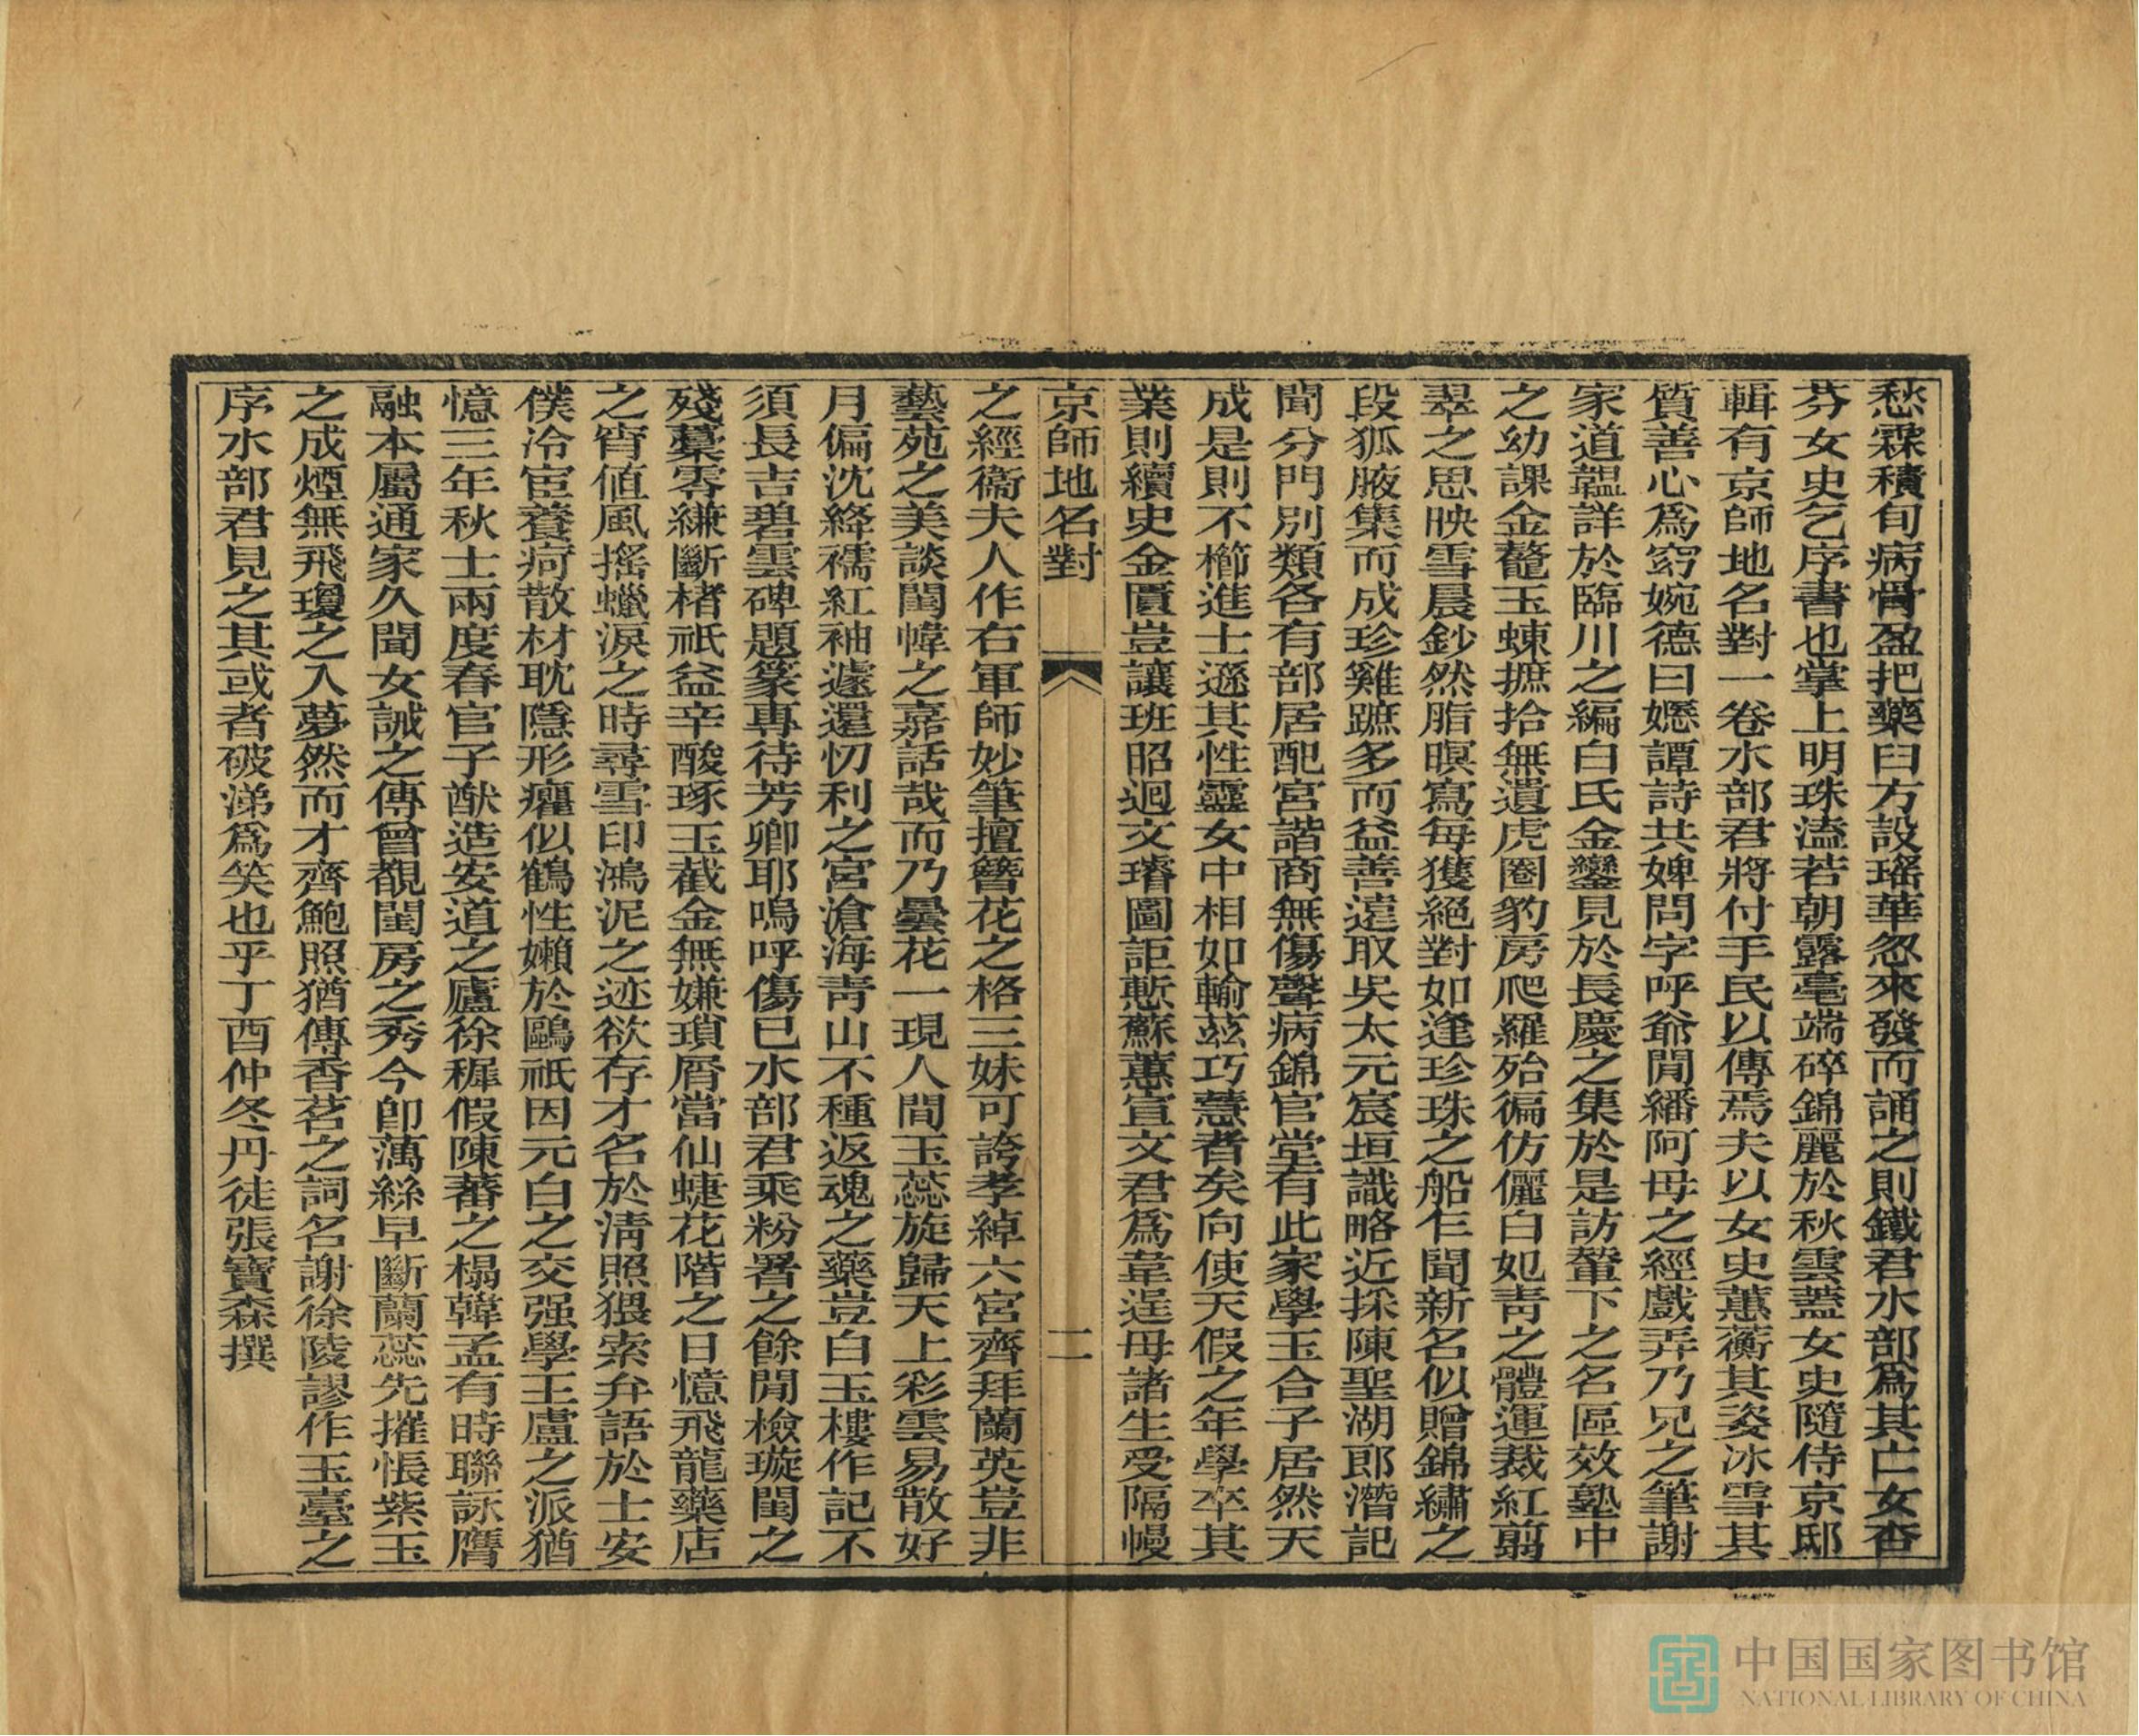 愁霖積旬病骨盈把藥臼方設瑤華忽來發而誦之則鐵君水部爲其亡女杏
芬女史乞序書也掌上明珠溘若朝露毫端碎錦麗於秋雲蓋女史隨侍京邸
輯有京師地名對一卷水部君將付手民以傳焉夫以女史蕙蘅其姿冰雪其
質善心爲窈婉德曰嬺譚詩共婢問字呼爺閒繙阿母之經戲弄乃兄之筆謝
家道韞詳於臨川之編白氏金鑾見於長慶之集於是訪輦下之名區效塾中
之幼課金鼇玉蝀摭拾無遺虎圈豹房爬羅殆徧仿儷白妃青之體運裁紅翦
翠之思映雪晨鈔然脂暝寫每獲絕對如逢珍珠之船乍聞新名似贈錦繡之
段狐腋集而成珍雞蹠多而益善遠取吳太元宸垣識略近採陳聖湖郎潛記
聞分門別類各有部居配宮諧商無傷聲病錦官堂有此家學玉合子居然天
成是則不櫛進士遜其性靈女中相如輸茲巧慧者矣向使天假之年學卒其
業則續史金匱豈讓班昭迴文璿圖詎慙蘇蕙宣文君爲韋逞母諸生受隔幔
京師地名對
二
之經衞夫人作右軍師妙筆擅簪花之格三妹可誇孝綽六宮齊拜蘭英豈非
藝苑之美談閨幃之嘉話哉而乃曇花一現人間玉蕊旋歸天上彩雲易散好
月偏沈絳襦紅袖遽還忉利之宮滄海青山不種返魂之藥豈白玉樓作記不
須長吉碧雲碑題篆專待芳卿耶嗚呼傷已水部君乘粉署之餘閒檢璇閨之
殘藁零縑斷楮祇益辛酸琢玉截金無嫌瑣屑當仙蜨花階之日憶飛龍藥店
之宵値風搖蠟淚之時尋雪印鴻泥之迹欲存才名於淸照猥索弁語於士安
僕冷宦養疴散材耽隱形癯似鶴性嬾於鷗祇因元白之交强學王盧之派猶
憶三年秋士兩度春官子猷造安道之廬徐穉假陳蕃之榻韓孟有時聯詠膺
融本屬通家久聞女誡之傳曾覩閨房之秀今卽藕絲早斷蘭蕊先摧悵紫玉
之成煙無飛瓊之入夢然而才齊鮑照猶傳香茗之詞名謝徐陵謬作玉臺之
序水部君見之其或者破涕爲笑也乎丁酉仲冬丹徒張寶森撰
中国国家图书馆
NATIONAL LIBRARY OF CHINA